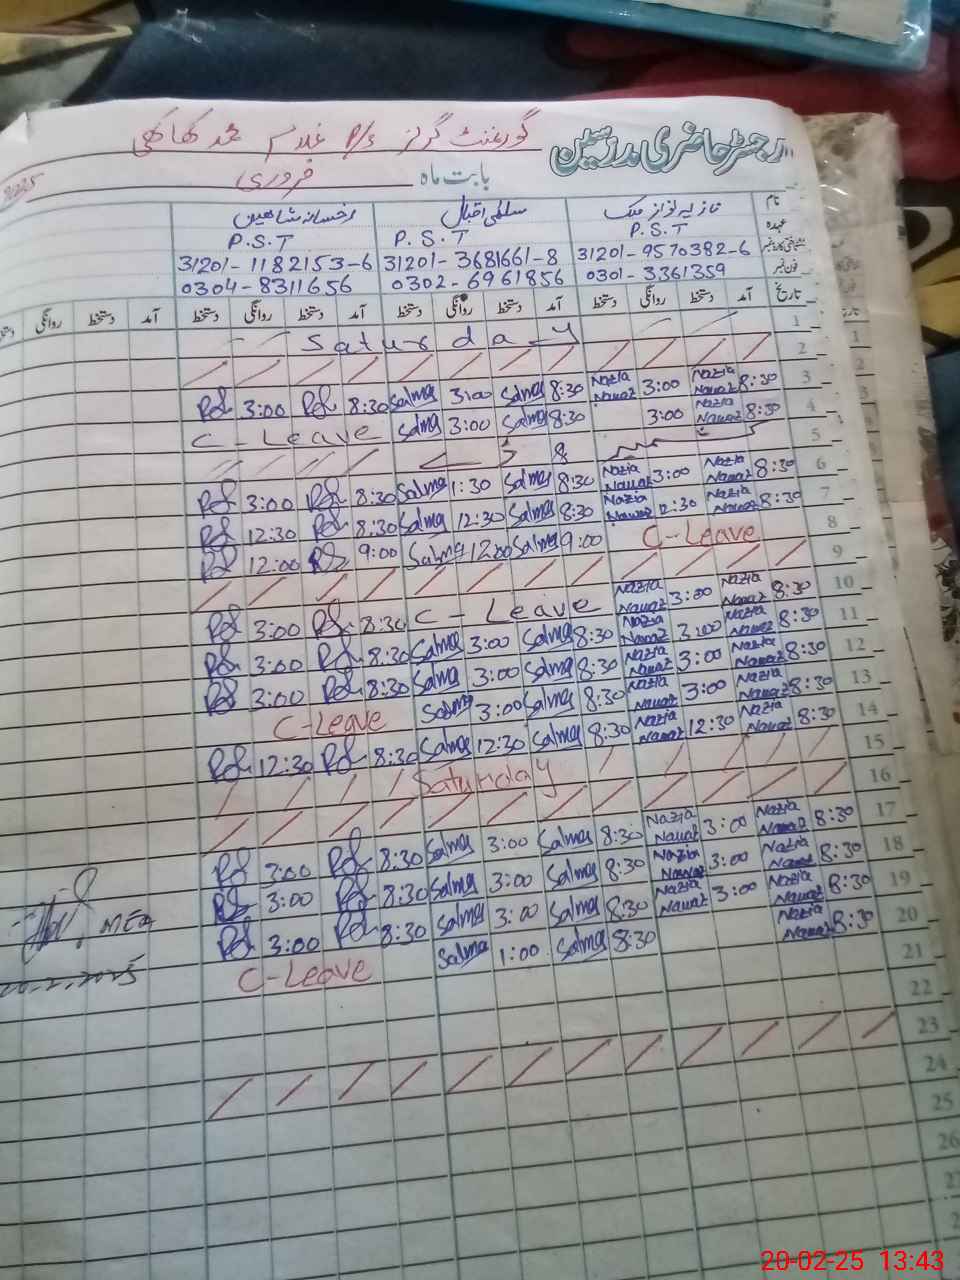 رجسٹر حاضری مدرسین گورنمنٹ گرلز P/S غلام محمد
بابت ماہ فروری 2025
نام نازیہ نواز ملک سلمیٰ اقبال رخسانہ شاہین
عہدہ P.S.T P.S.T P.S.T
شناختی کارڈ نمبر 31201-9570382-6 31201-3681661-8 31201-1182153-6
فون نمبر 0301-3361359 0302-6961856 0304-8311656
تاریخ آمد دستخط روانگی دستخط آمد دستخط روانگی دستخط آمد دستخط روانگی دستخط آمد دستخط روانگی دستخط
1 Saturday
2
3 8:30 Nazia Nawaz 3:00 Nazia Nawaz 8:30 Salma 3:00 Salma 8:30 3:00
4 8:30 Nazia Nawaz 3:00 8:30 Salma 3:00 Salma C-Leave
5
6 8:30 Nazia Nawaz 3:00 Nazia Nawaz 8:30 Salma 1:30 Salma 8:30 3:00
7 8:30 Nazia Nawaz 12:30 Nazia Nawaz 8:30 Salma 12:30 Salma 8:30 12:30
8 C-Leave 9:00 Salma 12:00 Salma 9:00 12:00
9
10 8:30 Nazia Nawaz 3:00 Nazia Nawaz C-Leave 8:30 3:00
11 8:30 Nazia Nawaz 3:00 Nazia Nawaz 8:30 Salma 3:00 Salma 8:30 3:00
12 8:30 Nazia Nawaz 3:00 Nazia Nawaz 8:30 Salma 3:00 Salma 8:30 3:00
13 8:30 Nazia Nawaz 3:00 Nazia Nawaz 8:30 Salma 3:00 Salma C-Leave
14 8:30 Nazia Nawaz 12:30 Nazia Nawaz 8:30 Salma 12:30 Salma 8:30 12:30
15 Saturday
16
17 8:30 Nazia Nawaz 3:00 Nazia Nawaz 8:30 Salma 3:00 Salma 8:30 3:00
18 8:30 Nazia Nawaz 3:00 Nazia Nawaz 8:30 Salma 3:00 Salma 8:30 3:00
19 8:30 Nazia Nawaz 3:00 Nazia Nawaz 8:30 Salma 3:00 Salma 8:30 3:00
20 8:30 Nazia Nawaz 8:30 Salma 1:00 Salma C-Leave
21
22
23
24
25
26
MEA
20-2-2025
20-02-25 13:43